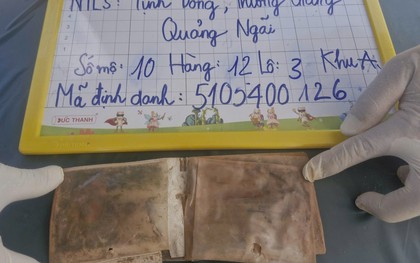 NTLS: Tịnh Đông, Trường Giang
Quảng Ngãi
Số mộ: 10 Hàng: 12 Lô: 3 Khu A
Mã định danh: 5105400126
ĐỨC THÀNH